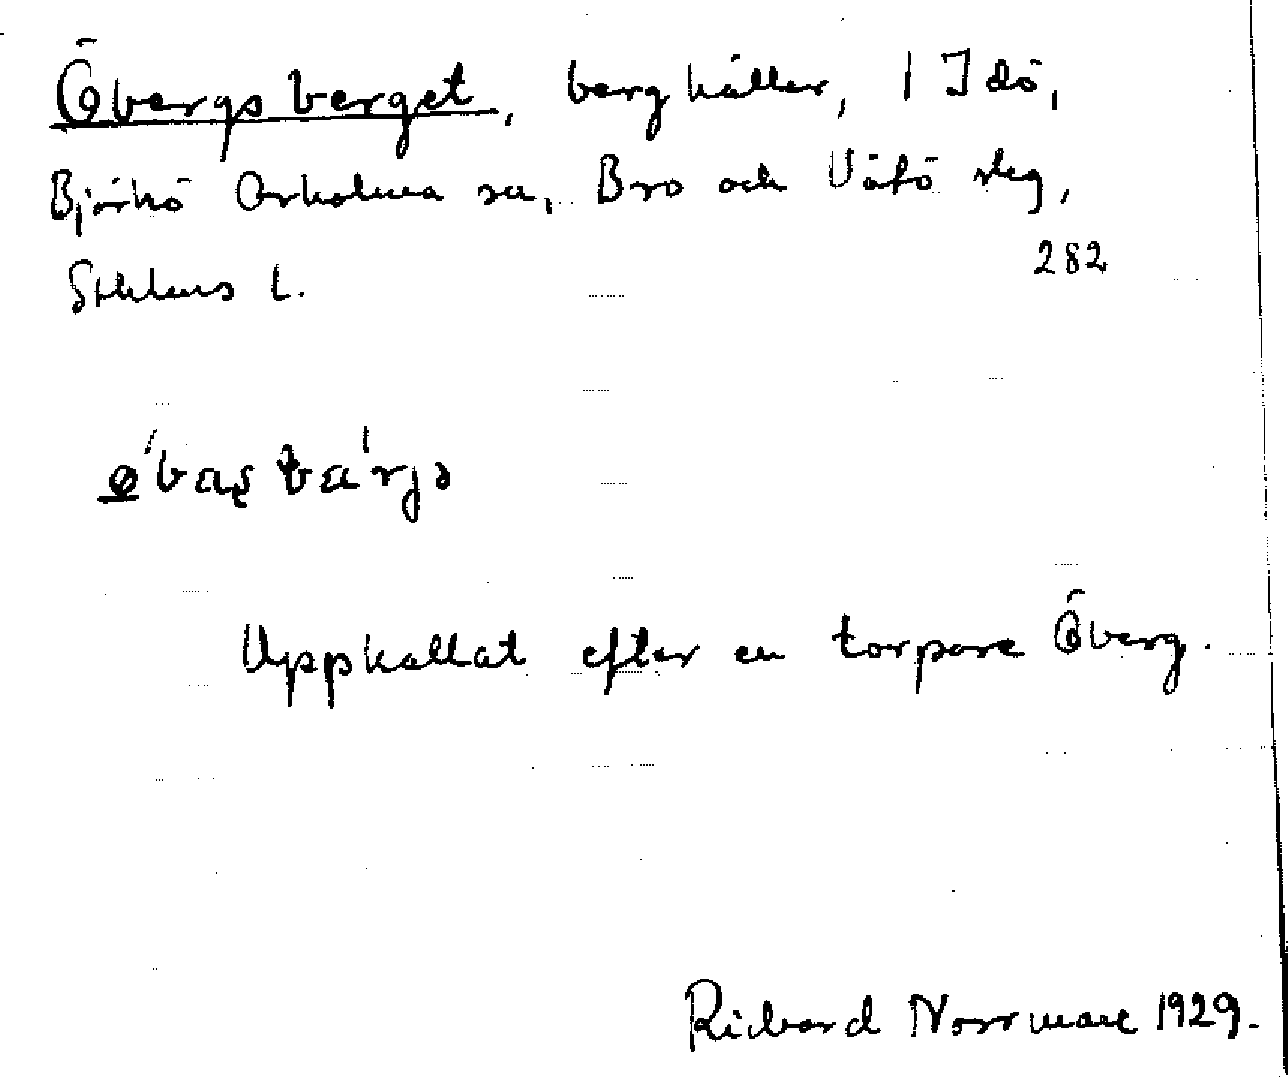 Öbergsberget, berghällar, 1 Idö,
Björkö Arholma sn, Bro och Vätö skg,
Sthlms l.
282
Uppkallat efter en torpare Öberg.
Richard Norrman 1929.